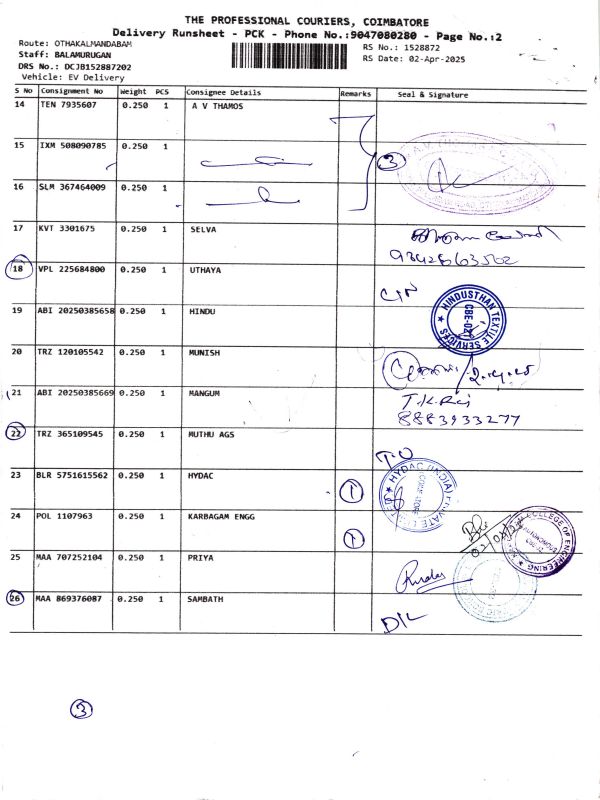 THE PROFESSIONAL COURIERS, COIMBATORE
Delivery Runsheet - PCK - Phone No.:9047080280 - Page No.:2
Route: OTHAKALMANDABAM
Staff: BALAMURUGAN
DRS No.: DCJB152887202
Vehicle: EV Delivery
RS No.: 1528872
RS Date: 02-Apr-2025
S No Consignment No Weight PCS Consignee Details Remarks Seal & Signature
14 TEN 7935607 0.250 1 A V THAMOS
15 IXM 508090785 0.250 1
3
16 SLM 367464009 0.250 1
17 KVT 3301675 0.250 1 SELVA
18 VPL 225684800 0.250 1 UTHAYA
19 ABI 20250385658 0.250 1 HINDU
HINDUSTHAN TEXTILE SERVICES
20 TRZ 120105542 0.250 1 MUNISH
21 ABI 20250385669 0.250 1 MANGUM
T.K.Raj
8883933277
22 TRZ 365109545 0.250 1 MUTHU AGS
23 BLR 5751615562 0.250 1 HYDAC 1
HYDAC (INDIA) PRIVATE
24 POL 1107963 0.250 1 KARBAGAM ENGG 1
COLLEGE OF ENGINEERING
25 MAA 707252104 0.250 1 PRIYA
26 MAA 869376087 0.250 1 SAMBATH
D/L
3